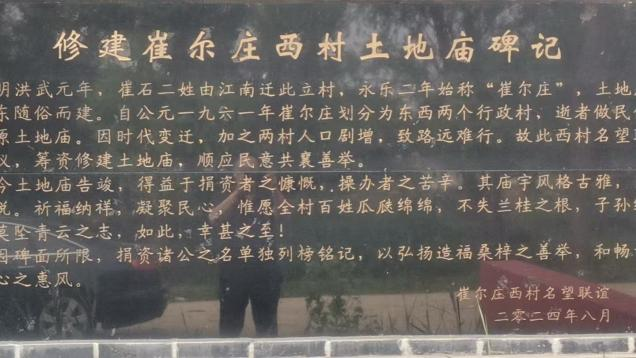 修建崔尔庄西村土地庙碑记
明洪武元年，崔石二姓由江南迁此立村，永乐二年始称“崔尔庄”，土地
东随俗而建。自公元一九六一年崔尔庄划分为东西两个行政村，逝者做民
原土地庙。因时代变迁，加之两村人口剧增，致路远难行。故此西村名望
议，筹资修建土地庙，顺应民意共襄善举。
今土地庙告竣，得益于捐资者之慷慨，操办者之苦辛。其庙宇风格古雅，
祈福纳祥，凝聚民心，惟愿全村百姓瓜瓞绵绵，不失兰桂之根，子孙
莫坠青云之志，如此，幸甚之至！
因碑面所限，捐资诸公之名单独列榜铭记，以弘扬造福桑梓之善举，和畅
心之惠风。
崔尔庄西村名望联谊
二零二四年八月